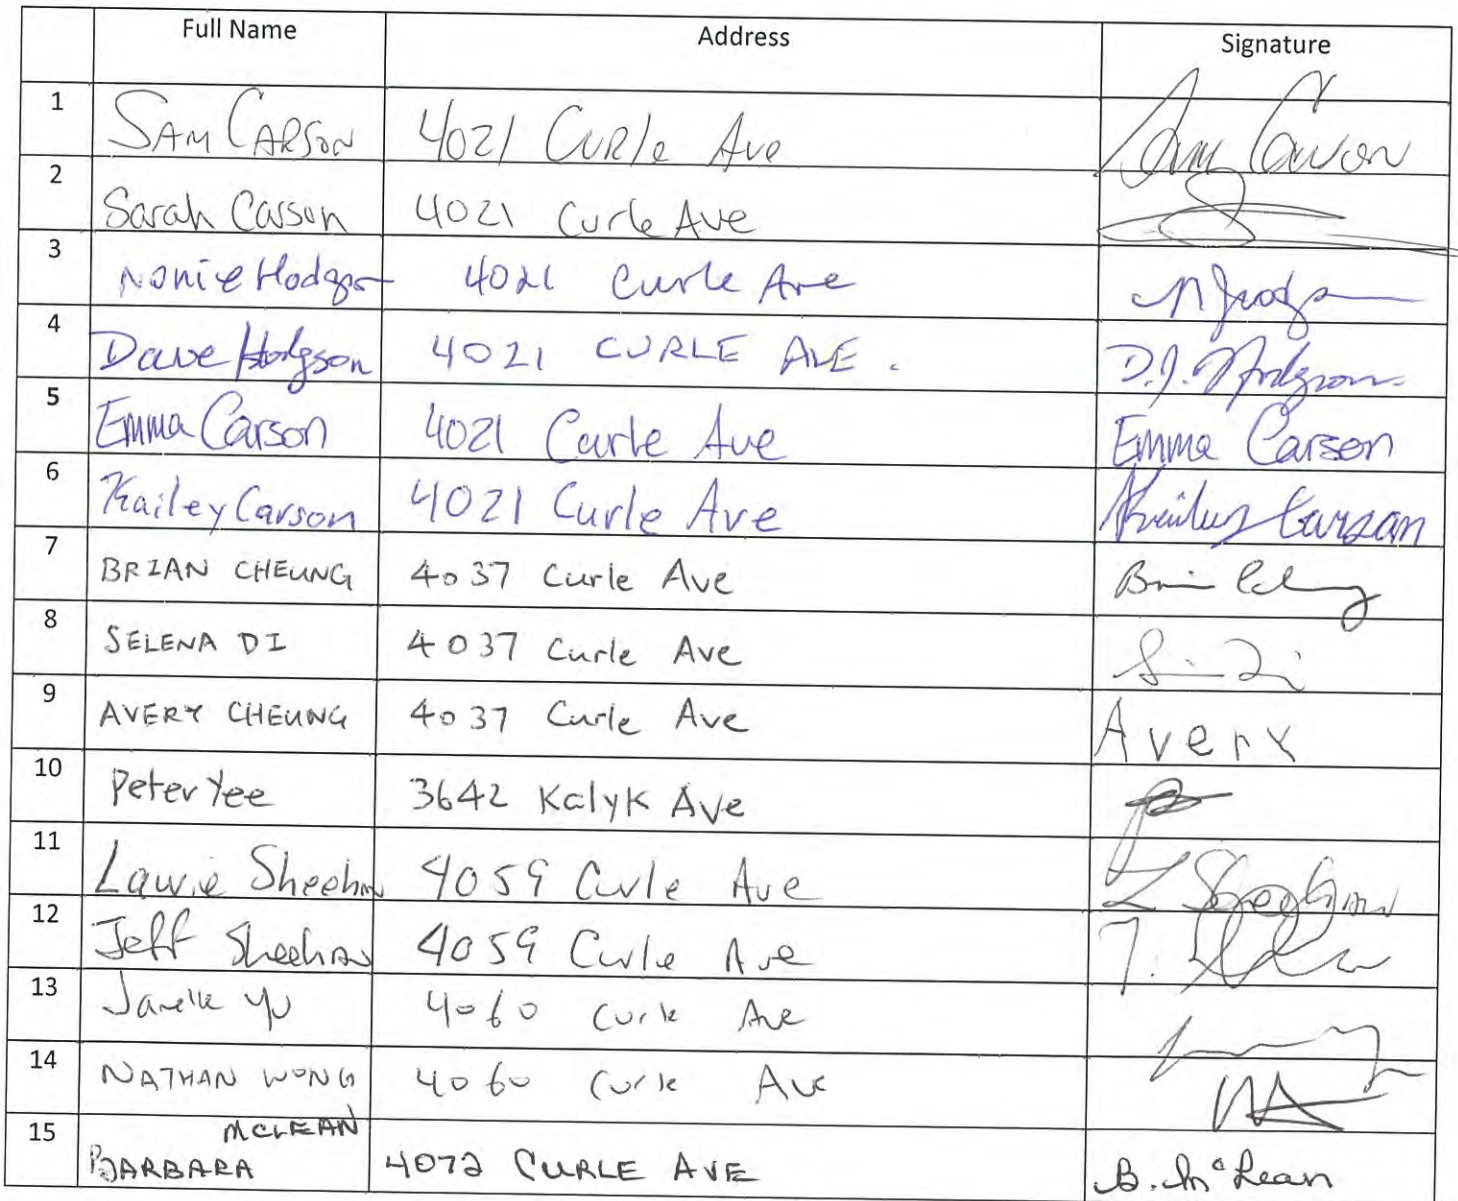 Full Name Address Signature
1 SAM CARSON 4021 CURle Ave Sam Carson
2 Sarah Carson 4021 Curle Ave
3 Nonie Hodgson 4021 Curle Ave N Hodgson
4 Dave Hodgson 4021 CURLE AVE. D.J. Hodgson
5 Emma Carson 4021 Curle Ave Emma Carson
6 Kailey Carson 4021 Curle Ave Kailey Carson
7 BRIAN CHEUNG 4037 Curle Ave
8 SELENA DI 4037 Curle Ave
9 AVERY CHEUNG 4037 Curle Ave Avery
10 Peter Yee 3642 Kalyk Ave
11 Laurie Sheehan 4059 Curle Ave L Sheehan
12 Jeff Sheehan 4059 Curle Ave
13 Janelle Yu 4060 Curle Ave
14 NATHAN WONG 4060 Curle Ave
MCLEAN
15 BARBARA 4072 CURLE AVE B. McLean